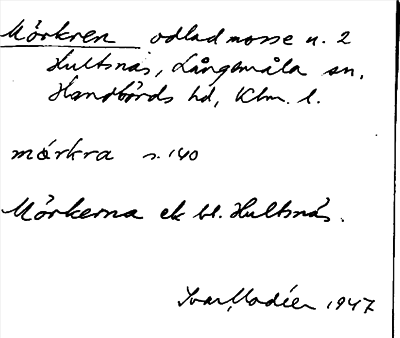 Mörkren odlad mosse u. 2
Hultsnäs, Långemåla sn,
Handbörds hd, Klm. l.
mörkra s. 140
Mörkerna ek bl. Hultsnäs.
Ivar Modéer 1947